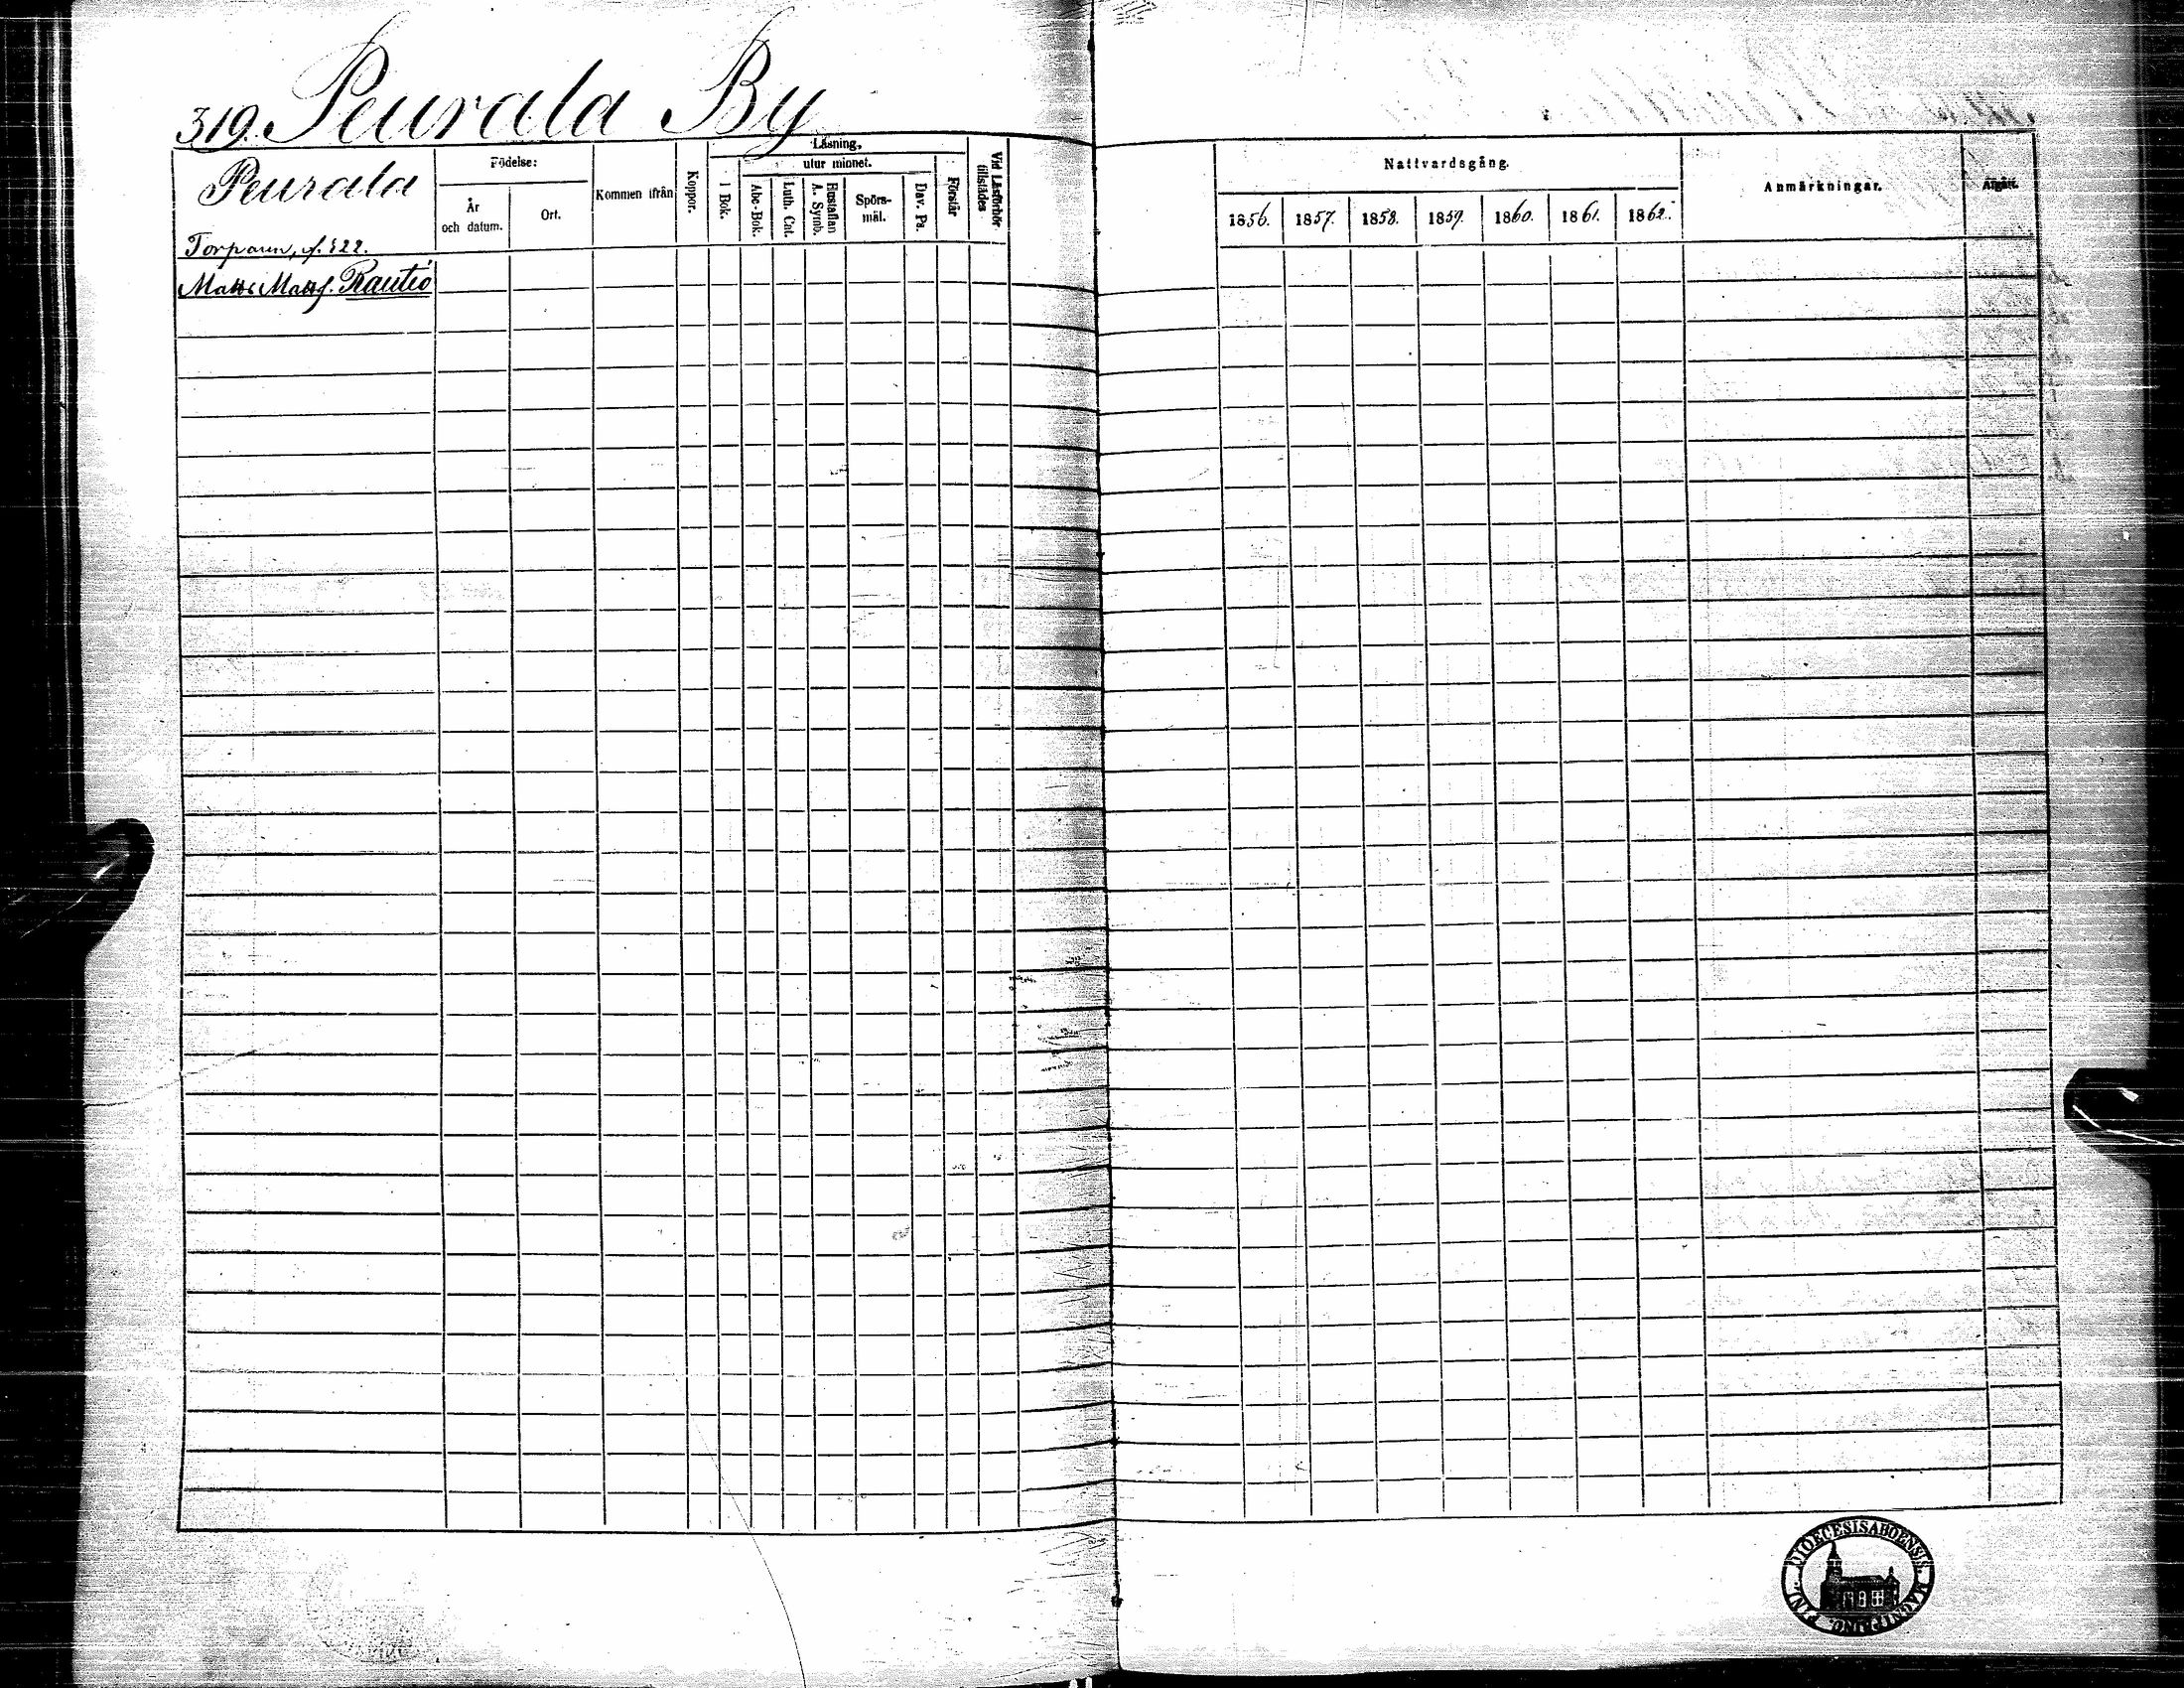 319. Peurala By
Peurala
Födelse:
År och datum.
Ort.
Kommen ifrån
Koppor.
Läsning,
utur minnet.
I Bok.
Abc-Bok.
Luth. Cat.
Hustaflan A. Symb.
Spörs-mål.
Dav. Ps.
Förstår
Vid Läsförhör tillstädes
Nattvardsgång.
1856. 1857. 1858. 1859. 1860. 1861. 1862.
Anmärkningar.
Afgått.
Torparen, f. 822.
Matts Matts. Rautio
DIOECESIS ABOENSIS. MAGNI PRINC. FINL.